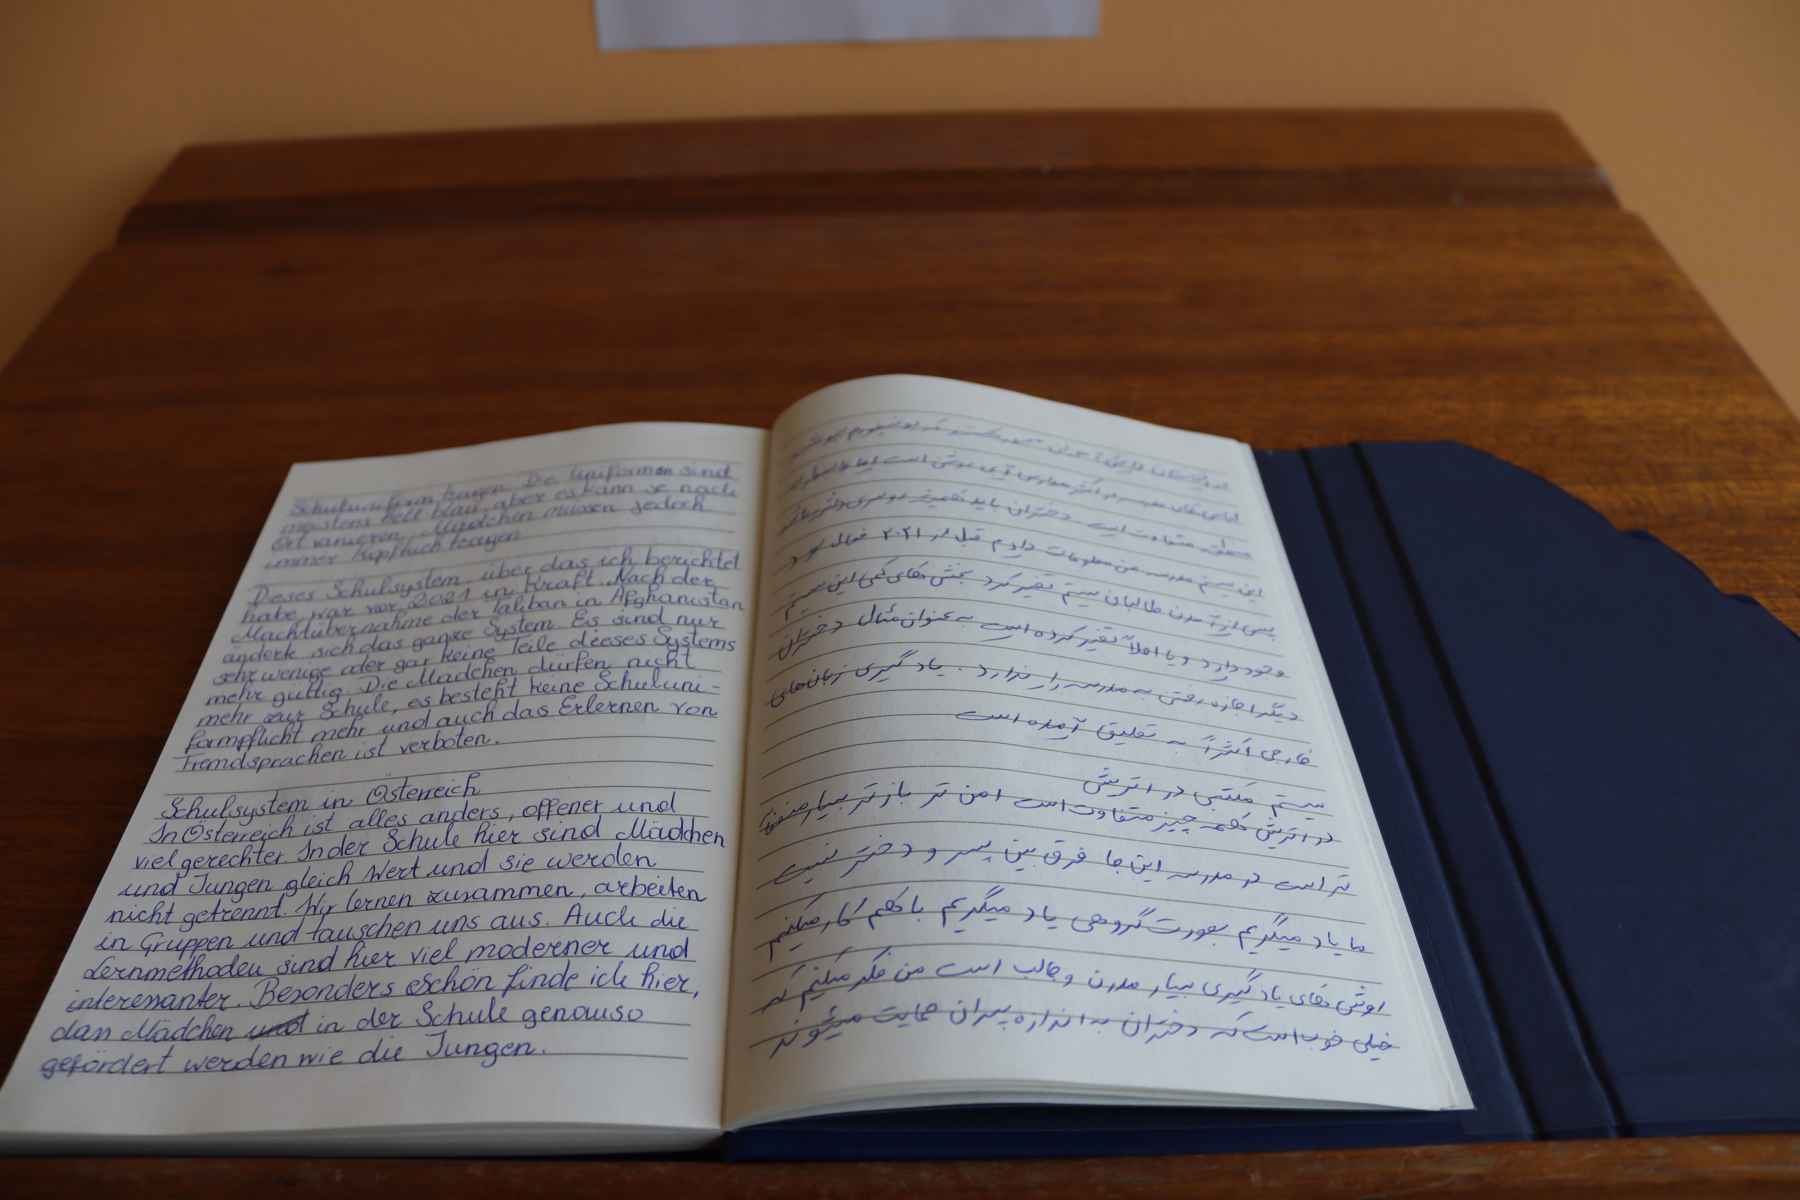 Schuluniform tragen. Die Uniformen sind
meistens hell blau, aber es kann je nach
Ort variieren. Mädchen müssen jedoch
immer Kopftuch tragen.
Dieses Schulsystem, über das ich berichtet
habe war vor 2021 in Kraft. Nach der
Machtübernahme der Taliban in Afghanistan
änderte sich das ganze System. Es sind nur
sehr wenige oder gar keine Teile dieses Systems
mehr gültig. Die Mädchen dürfen nicht
mehr zur Schule, es besteht keine Schuluni-
formpflicht mehr und auch das Erlernen von
Fremdsprachen ist verboten.
Schulsystem in Österreich
In Österreich ist alles anders, offener und
viel gerechter. In der Schule hier sind Mädchen
und Jungen gleich Wert und sie werden
nicht getrennt. Wir lernen zusammen, arbeiten
in Gruppen und tauschen uns aus. Auch die
Lernmethoden sind hier viel moderner und
interessanter. Besonders schön finde ich hier,
dass Mädchen und in der Schule genauso
gefördert werden wie die Jungen.
لباس های مدرسه در اکثر مدارس آبی روشن است اما
منطقه متفاوت است دختران باید همیشه روسری داشته باشند
این سیستم مدرسه من معلومات دادم قبل از ۲۰۲۱ فعال بود
پس از آمدن طالبان سیستم تغیر کرد بخش های کمی این سیستم
وجود دارد و یا اصلاً تغیر کرده است به عنوان مثال دختران
دیگر اجازه رفتن به مدرسه را ندارد. یادگیری زبان های
خارجی اکثراً به تعلیق آمده است
سیستم مکتبی در اتریش
در اتریش همه چیز متفاوت است امن تر باز تر بسیار منصفا
تر است در مدرسه این جا فرق بین پسر و دختر نیست
ما یاد میگریم بصورت گروهی یاد میگریم با هم کار میکنیم
اوش های یادگیری بسیار مدرن و جالب است من فکر میکنم که
خیلی خوب است که دختران به اندازه پسران حمایت میشوند